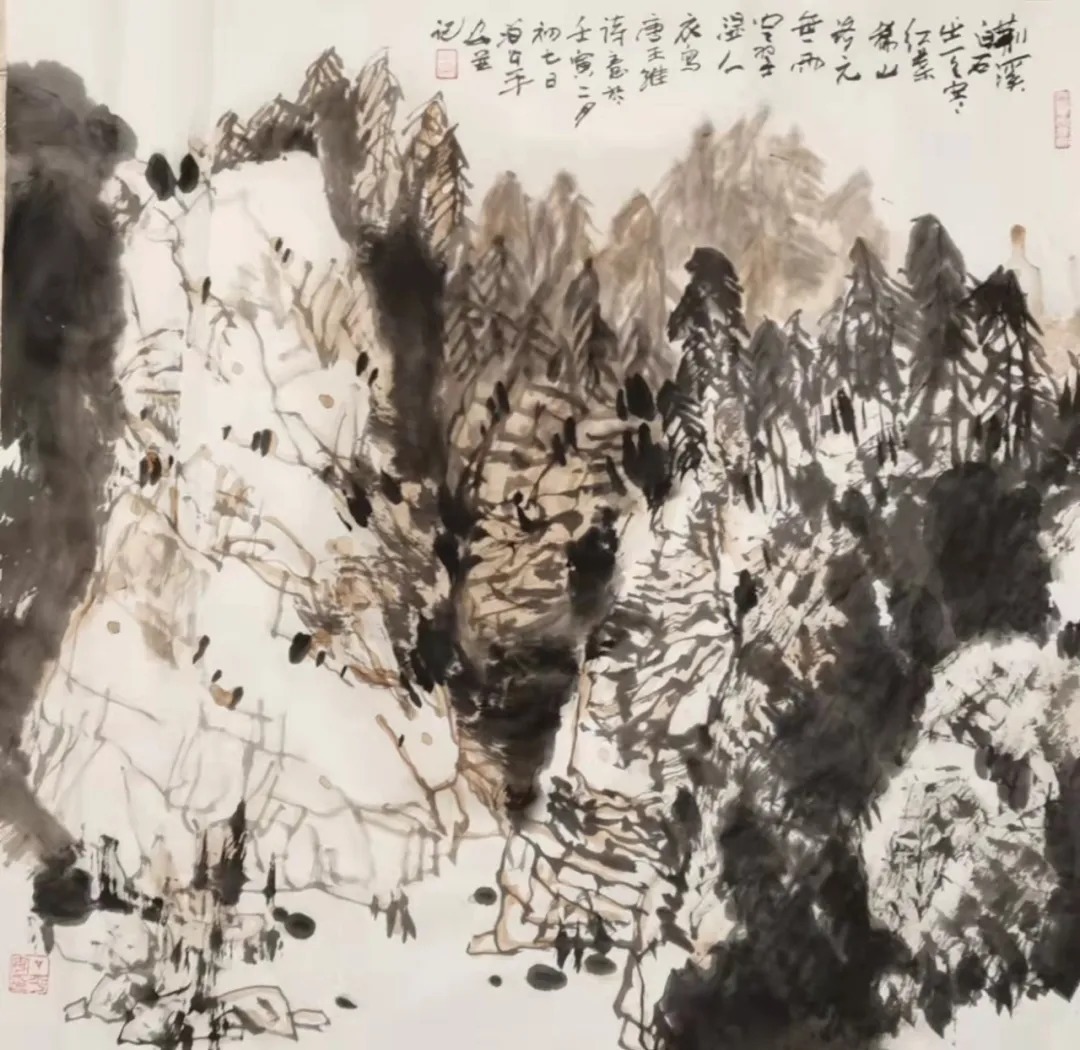 荆溪
白石
出天寒
红葉
稀山
路元
無雨
空翠
湿人
衣写
唐王维
诗意於
壬寅二月
初七日
记